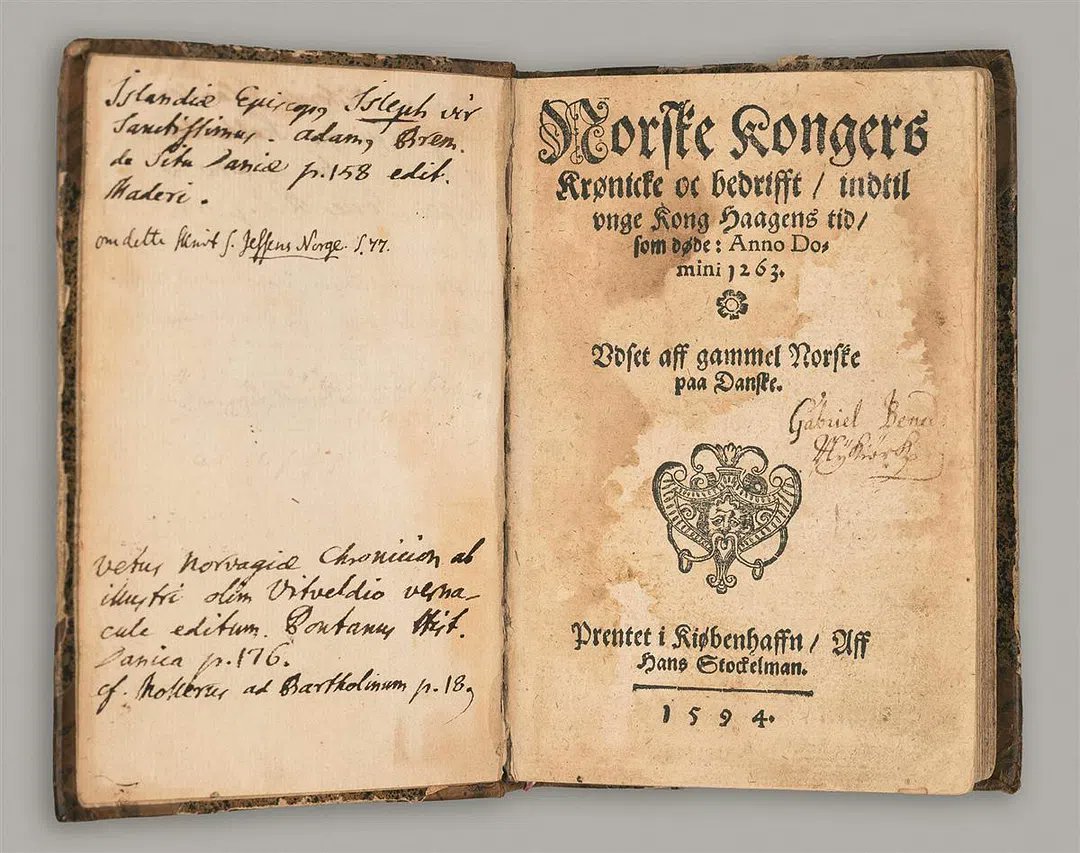 Islandiæ Episcopꝰ Isleph vir
Sanctissimus. Adamꝰ Brem.
de Situ Daniæ p. 158 edit.
Maderi.
om dette Skrivt s. Jessens Norge. S. 77.
Vetus Norvagiæ Chronicion ab
illustri olim Vitveldio verna-
cule editum. Pontanus Hist.
Danica p. 176.
cf. Mollerus ad Bartholinum p. 18
Norske Kongers
Krønicke oc bedrifft / indtil
vnge Kong Haagens tid /
som døde: Anno Do-
mini 1263.
Vdset aff gammel Norske
paa Danske.
Gabriel
Prentet i Kiøbenhaffn / Aff
Hans Stockelman.
1594.